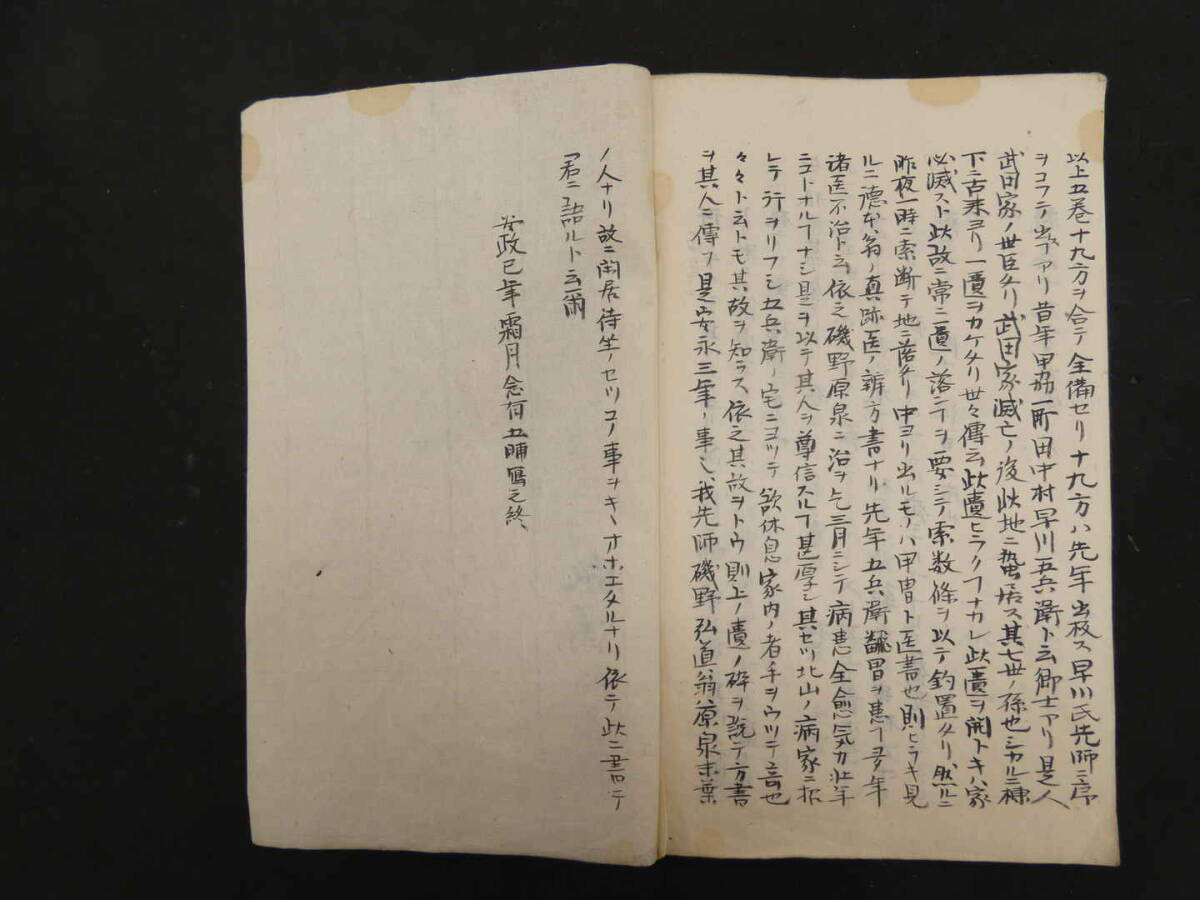 以上五巻十九方ヲ合テ全備セリ十九方ハ先年出板ス早川氏先師ニ序
ヲコフテ出アリ昔年甲劦一町田中村早川五兵衛ト云郷士アリ是人
武田家ノ世臣タリ武田家滅亡ノ後此地ニ蟄居ス其七世ノ孫也シカルニ棟
下ニ古来ヨリ一匱ヲカケタリ世々傳云此匱ヒラクヿナカレ此匱ヲ開トキハ家
必滅スト此故ニ常ニ匱ノ落ンヿヲ要シテ索数條ヲ以テ釣置タリ然ルニ
昨夜一時ニ索断テ地ニ落タリ中ヨリ出ルモノハ甲冑ト医書也則ヒラキ見
ルニ徳本翁ノ真跡医ノ辨方書ナリ先年五兵衛飜胃ヲ患フヿ多年
諸医不治ト云依之磯野原泉ニ治ヲ乞三月ニシテ病患全愈気力壮年
ニコトナルヿナシ是ヲ以テ其人ヲ尊信スルヿ甚厚シ其セツ北山ノ病家ニ招
レテ行ヲリフシ五兵衛ノ宅ニヨツテ欲休息家内ノ者手ヲウツテ奇也
々々ト云トモ其故ヲ知ラス依之其故ヲトウ則上ノ匱ノ砕ヲ説テ方書
ヲ其人ニ傳フ是安永三年ノ事也我先師磯野弘道翁ハ原泉末葉
ノ人ナリ故ニ閑居待坐ノセツコノ事ヲキヽオホエタルナリ依テ此ニ書シテ
君ニ語ルト云爾
安政巳年霜月念有五晡写之終